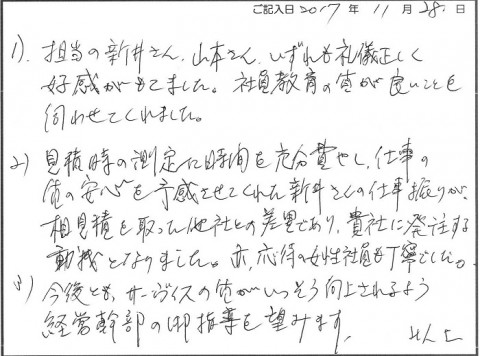 ご記入日 2017年 11月 28日
1). 担当の新井さん、山本さん、いずれも礼儀正しく
好感がもてました。社員教育の値が良いことを
伺わせてくれました。
2) 見積時の測定に時間を充分費やし、仕事の
値の安心を予感させてくれた新井さんの仕事振りが、
相見積を取った他社との差異であり、貴社に発注する
動機となりました。亦、応待の女性社員も丁寧でした。
3) 今後とも、サービィスの値がいっそう向上されるよう
経営幹部の御指導を望みます。
以上